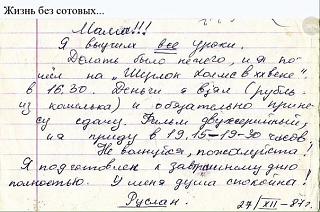 Жизнь без сотовых...
Мама!!!
Я выучил все уроки.
Делать было нечего, и я по-
шёл на „Шерлок Холмс в XX веке"
в 16.30. Деньги я взял (рубль
из кошелька) и обязательно прине-
су сдачу. Фильм двухсерийный,
и я приду в 19.15-19-30 часов
Не волнуйся, пожалуйста!
Я подготовлен к завтрашнему дню
полностью. У меня душа спокойна!
Руслан. 27/XII-87г.